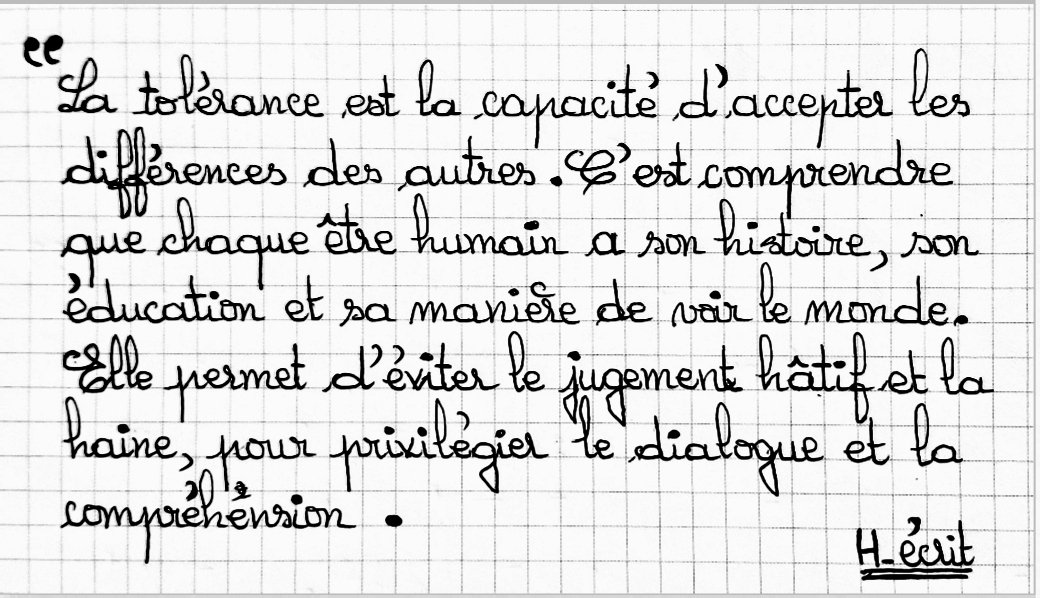 “La tolérance est la capacité d'accepter les
différences des autres. C'est comprendre
que chaque être humain a son histoire, son
éducation et sa manière de voir le monde.
Elle permet d'éviter le jugement hâtif et la
haine, pour privilégier le dialogue et la
compréhension.
H-écrit